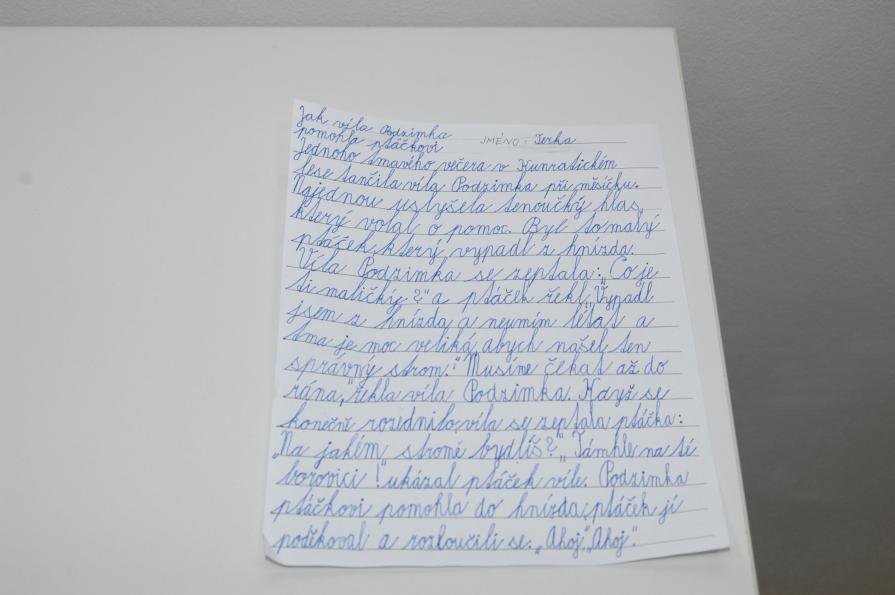 Jak víla Podzimka
pomohla ptáčkovi
JMÉNO: Terka
Jednoho tmavého večera v Kunratickém
lese tančila víla Podzimka při měsíčku.
Najednou uslyšela tenoučký hlas,
který volal o pomoc. Byl to malý
ptáček, který vypadl z hnízda.
Víla Podzimka se zeptala: „Co je
ti maličký?" a ptáček řekl, „Vypadl
jsem z hnízda a neumím létat a
tma je moc veliká, abych našel ten
správný strom." „Musíme čekat až do
rána," řekla víla Podzimka. Když se
konečně rozednilo, víla se zeptala ptáčka:
„Na jakém stromě bydlíš?" „Támhle na té
borovici!" ukázal ptáček víle. Podzimka
ptáčkovi pomohla do hnízda, ptáček jí
poděkoval a rozloučili se. „Ahoj", „Ahoj".